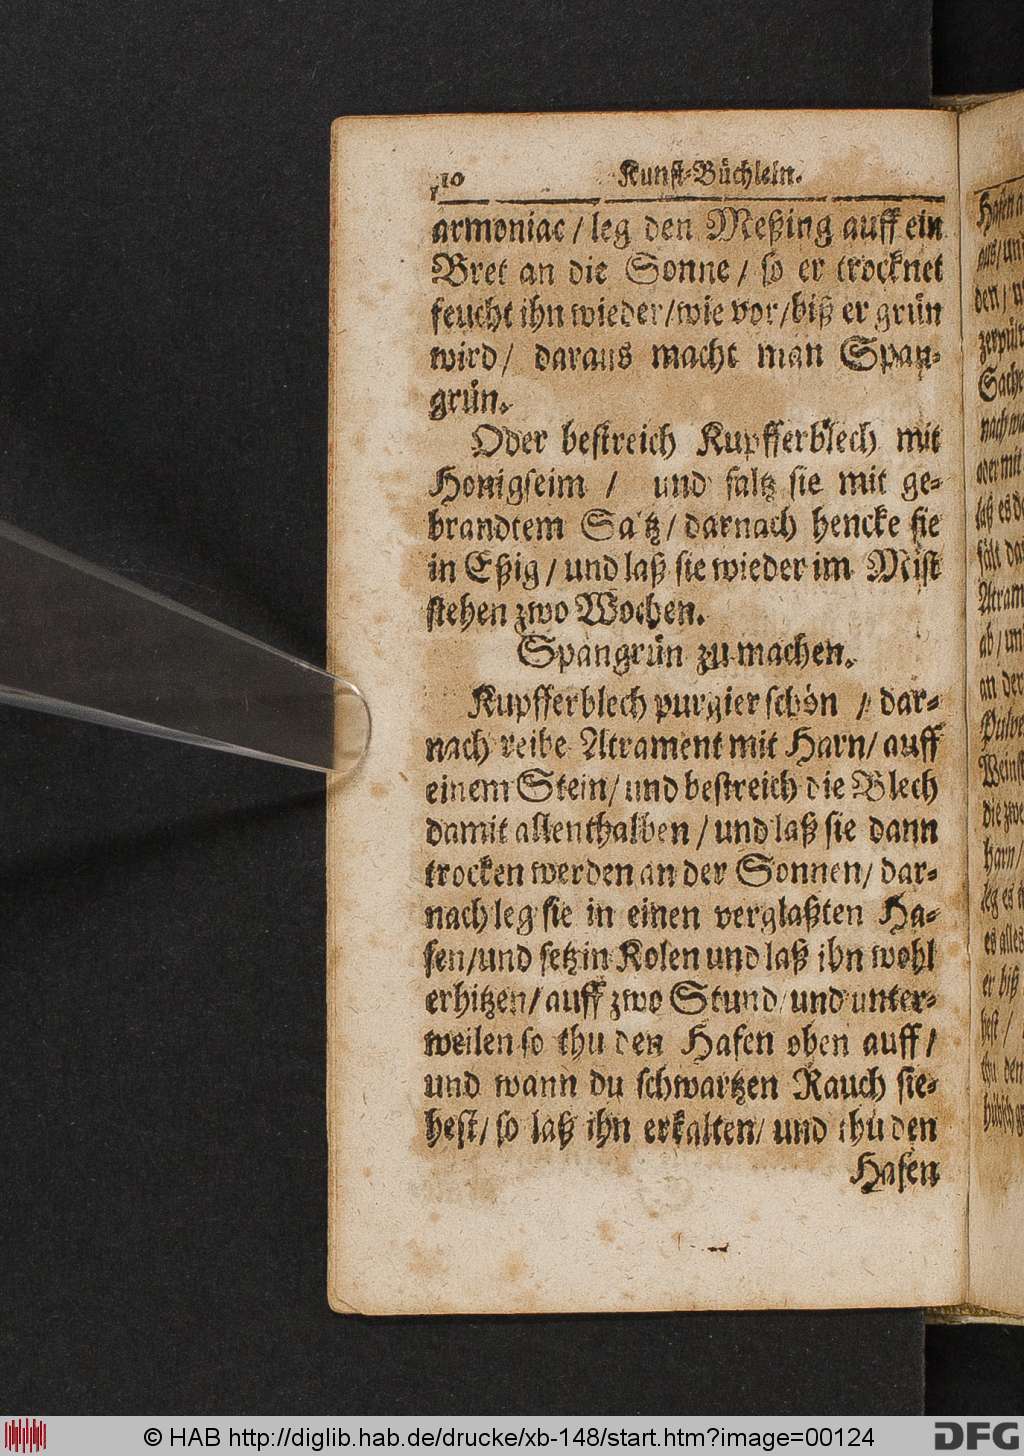 110 Kunst-Büchlein.
armoniac / leg den Meßing auff ein
Bret an die Sonne / so er trocknet
feucht ihn wieder / wie vor / biß er grün
wird / daraus macht man Span-
grün.
Oder bestreich Kupfferblech mit
Honigseim / und saltz sie mit ge-
brandtem Saltz / darnach hencke sie
in Eßig / und laß sie wieder im Mist
stehen zwo Wochen.
Spangrün zu machen.
Kupfferblech purgier schön / dar-
nach reibe Atrament mit Harn / auff
einem Stein / und bestreich die Blech
damit allenthalben / und laß sie dann
trocken werden an der Sonnen / dar-
nach leg sie in einen verglaßten Ha-
fen / und setz in Kolen und laß ihn wohl
erhitzen / auff zwo Stund / und unter-
weilen so thu den Hafen oben auff /
und wann du schwartzen Rauch sie-
hest / so laß ihn erkalten / und thu den
Hafen
© HAB http://diglib.hab.de/drucke/xb-148/start.htm?image=00124
DFG